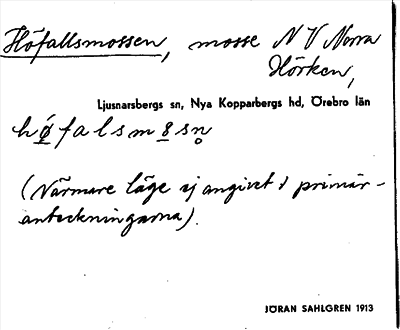 Höfallsmossen, mosse NV Norra
Hörken,
Ljusnarsbergs sn, Nya Kopparbergs hd, Örebro län
hǿfalsm8sn̥
(Närmare läge ej angivet i primär-
anteckningarna).
JÖRAN SAHLGREN 1913